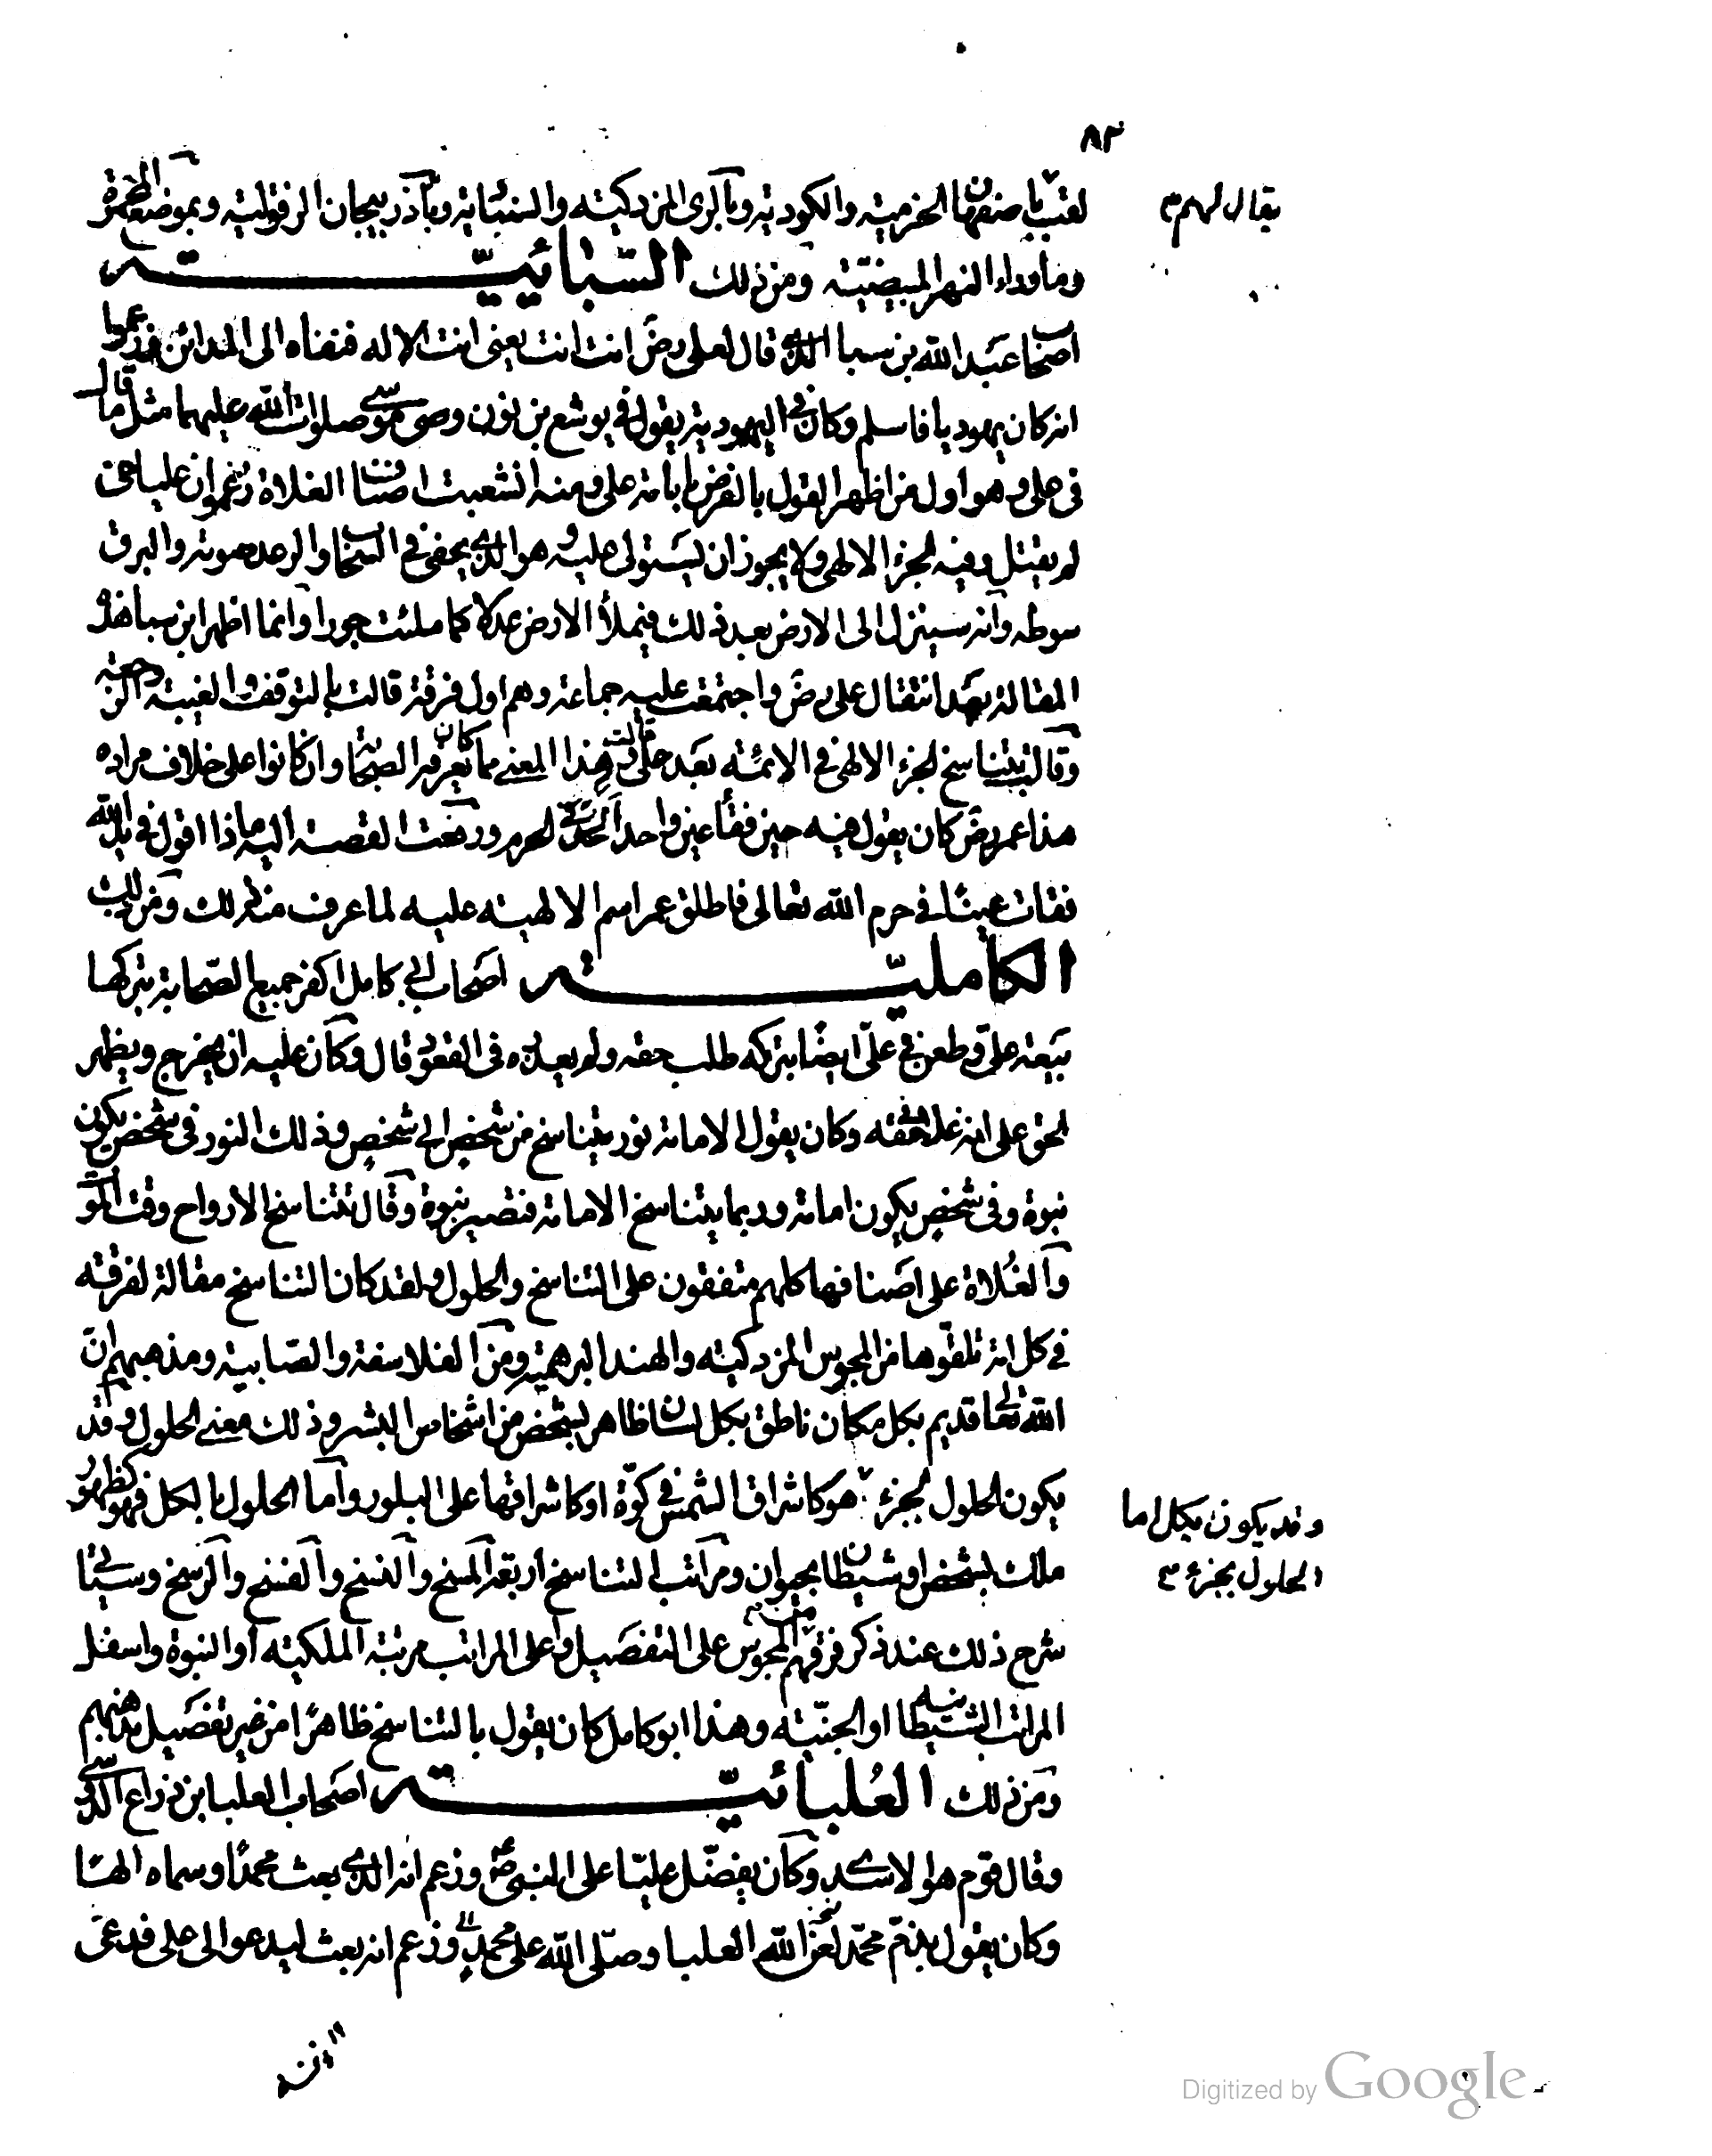 ٨٣
لقب باصفهان الخرمية والكودية وبالرى المزدكية والسنبادية وبآذربيجان الذقولية وبموضع المحمرة
يقال لهم
وما وراء النهر المبيضة ومن ذلك السبائية
اصحاب عبد الله بن سبا الذى قال لعلى رضى انت انت يعنى انت الاله فنفاه الى المدائن وزعموا
انه كان يهوديا فاسلم وكان فى اليهودية يقول فى يوشع بن نون وصى موسى صلوات الله عليهما مثل ما قال
فى على وهو اول من اظهر القول بالفرض بامامة على ومنه انشعبت اصناف الغلاة زعموا ان عليا حى
لم يقتل وفيه الجزء الالهى ولا يجوز ان يستولى عليه وهو الذى يجئ فى السحاب والرعد صوته والبرق
سوطه وانه سينزل الى الارض بعد ذلك فيملأ الارض عدلا كما ملئت جورا وانما اظهر ابن سبا هذه
المقالة بعد انتقال على رض واجتمعت عليه جماعة وهم اول فرقة قالت بالتوقف والغيبة والرجعة
وقالت بتناسخ الجزء الالهى فى الائمة بعد على قالت وهذا المعنى مما كان يعرفه الصحابة وان كانوا على خلاف مراده
هذا عمر رض كان يقول فيه حين فقأ عين واحد فى الحرم ورفعت القصة اليه ماذا اقول فى يد الله
فقأت عينا فى حرم الله تعالى فاطلق عمر اسم الالهية عليه لما عرف منه ذلك ومن ذلك
الكاملية اصحاب ابى كامل اكفر جميع الصحابة بتركها
بيعة على وطعن فى على ايضا بتركه طلب حقه ولم يعذره فى القعود قال وكان عليه ان يخرج ويظهر
الحق على انه غلا فى حقه وكان يقول الامامة نور يتناسخ من شخص الى شخص وذلك النور فى شخص يكون
نبوة وفى شخص يكون امامة وربما يتناسخ الامامة فتصير نبوة وقال بتناسخ الارواح وقت الموت
والغلاة على اصنافها كلهم متفقون على التناسخ والحلول ولقد كان التناسخ مقالة لفرقة
فى كل امة تلقوها من المجوس المزدكية والهند البرهمية ومن الفلاسفة والصابية ومذهبهم ان
الله تعالى قديم بكل مكان ناطق بكل لسان ظاهر بشخص من اشخاص البشر وذلك معنى الحلول وقد
يكون الحلول بجزء هو كاشراق الشمس فى كوة او كاشراقها على البلور واما الحلول بالكل فهو كظهور
وقد يكون بكل اما
الحلول بجزء
ملك بشخص او شيطان بحيوان ومراتب التناسخ اربعة المسخ والنسخ والفسخ والرسخ وسيأتى
شرح ذلك عند ذكر فرقهم من المجوس على التفصيل واعلى المراتب مرتبة الملكية او النبوة واسفل
المراتب الشيطانية او الجنية وهذا ابو كامل كان يقول بالتناسخ ظاهرا من غير تفصيل مذهبهم
ومن ذلك العلبائية اصحاب العلبا بن ذراع الدوسى
وقال قوم هو الاسدى وكان يفضل عليا على النبى وزعم انه الذى بعث محمدا وسماه الها
وكان يقول بذم محمد لعن الله العلبا وصلى الله على محمد وزعم انه بعث ليدعو الى على فدعى
Digitized by Google